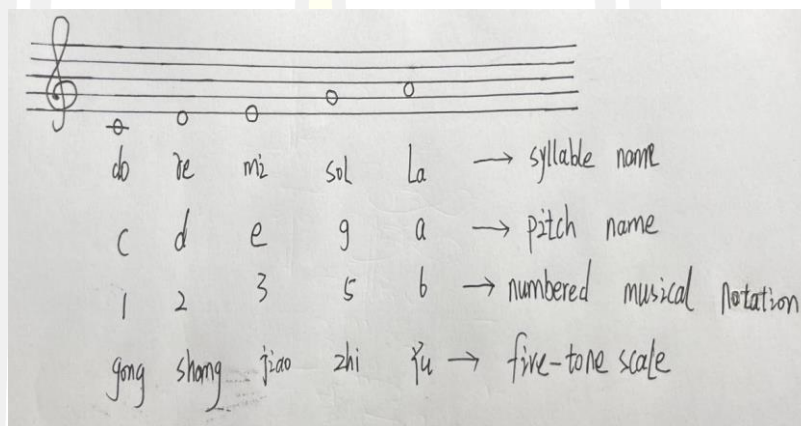 do re mi sol La → syllable name
c d e g a → pitch name
1 2 3 5 6 → numbered musical notation
gong shang jiao zhi Yu → five-tone scale